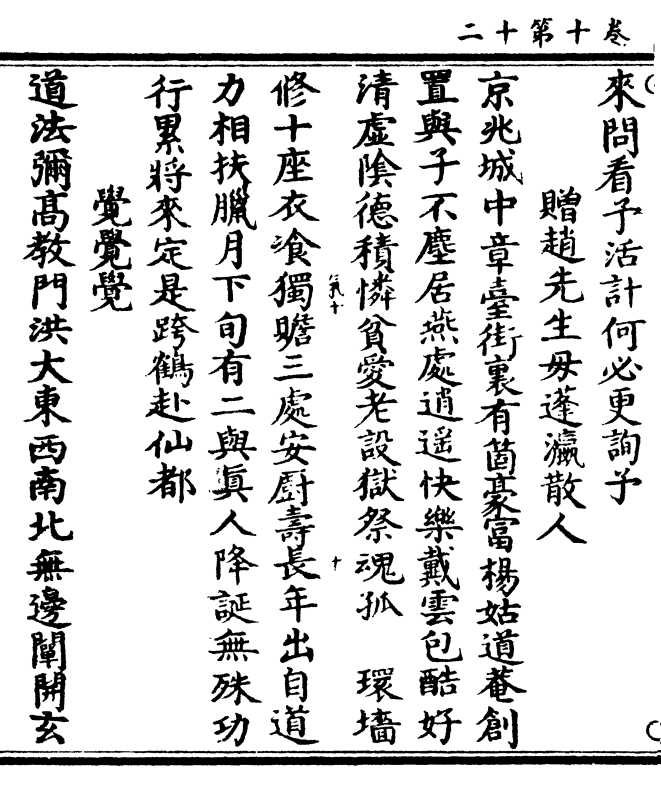 卷十第十二
來問看予活計何必更詢予
贈趙先生毋蓬瀛散人
京兆城中章臺街裏有箇豪富楊姑道菴創
置與子不塵居燕處逍遥快樂戴雲包酷好
清虛陰德積憐貧愛老設獄祭魂孤　環墻
氣十
十
修十座衣飡獨贍三處安厨壽長年出自道
力相扶臘月下旬有二與真人降誕無殊功
行累將來定是跨鶴赴仙都
覺覺覺
道法彌髙教門洪大東西南北無邊闡開玄